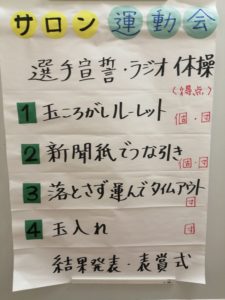 サロン運動会
選手宣誓・ラジオ体操
(得点)
1 玉ころがしルーレット
個・団
2 新聞紙でつな引き
個・団
3 落とさず運んでタイムアウト
団
4 玉入れ
団
結果発表・表賞式